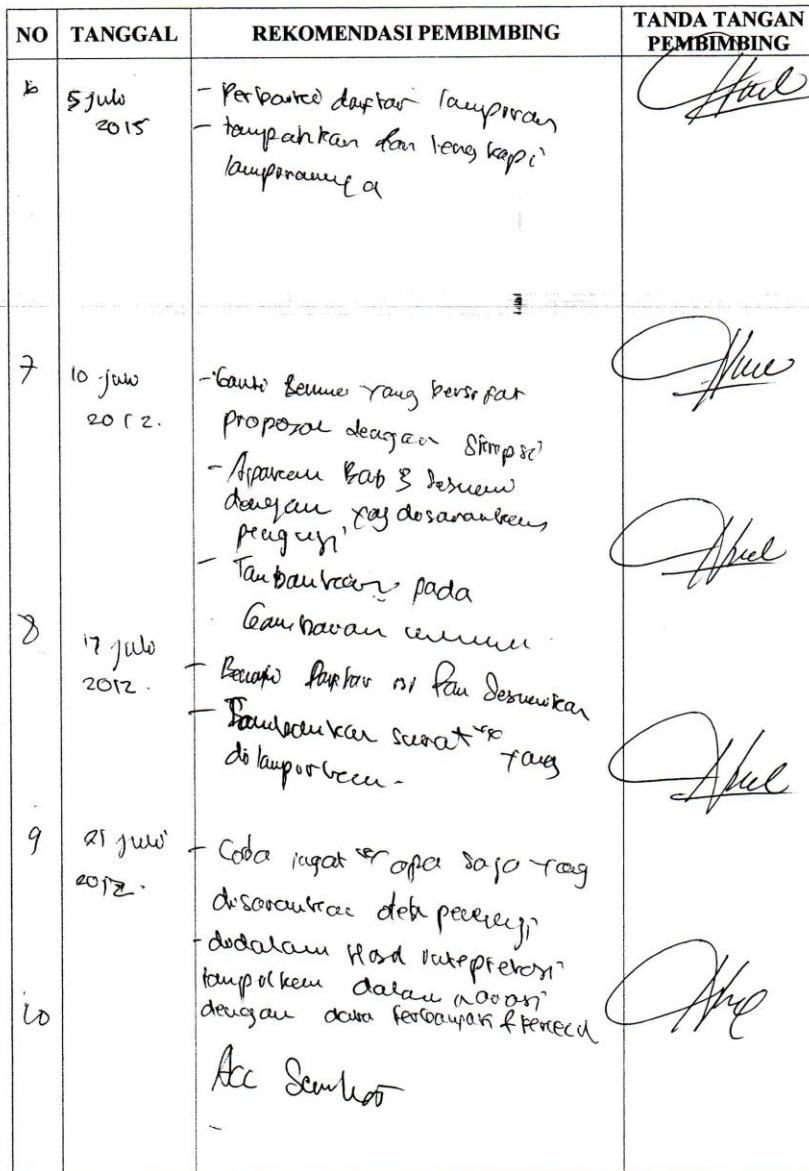 NO TANGGAL REKOMENDASI PEMBIMBING TANDA TANGAN PEMBIMBING
5 juli - Perbaiki daftar lampiran
2015 - tampahkan dan lengkapi
lampirannya
7 10 juli - Ganti semua yang bersifat
2012. proposal dengan Skripsi
- Bab 3 sesuai
dengan yag disarankan
penguji
- Tambahkan pada
8 Gambaran umum
17 juli
2012. - daftar isi dan sesuaikan
- Tambahkan surat yang
dilampirkan -
9 21 juli - Coba ingat apa saja yag
2012. disarankan oleh penguji
- didalam Hasil
tampilkan dalam narasi
10 dengan data terbanyak & terkecil
Acc